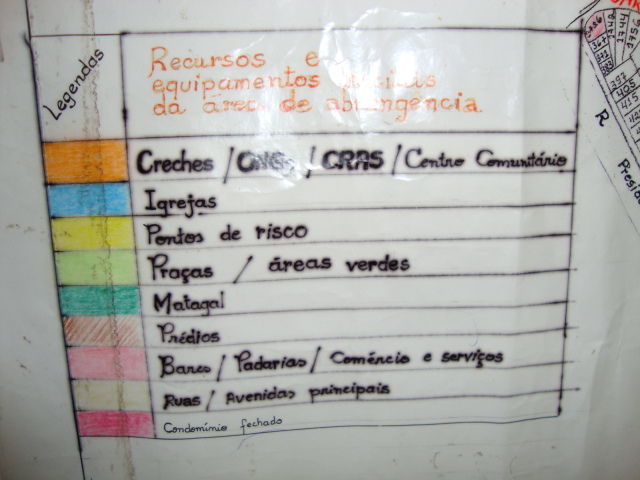 Legendas
Recursos e
equipamentos sociais
da área de abrangência
Creches / ONGs / CRAS / Centro Comunitário
Igrejas
Pontos de risco
Praças / áreas verdes
Matagal
Prédios
Bares / Padarias / Comércio e serviços
Ruas / Avenidas principais
Condomínio fechado
1744
1756
405
415
R
Presid